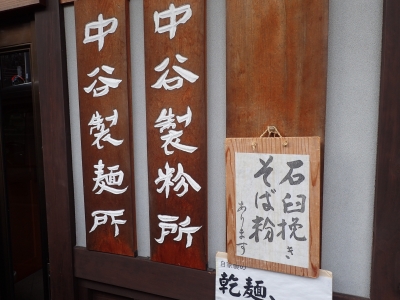 中谷製粉所
中谷製麺所
石臼挽き
そば粉
あります
乾麺、